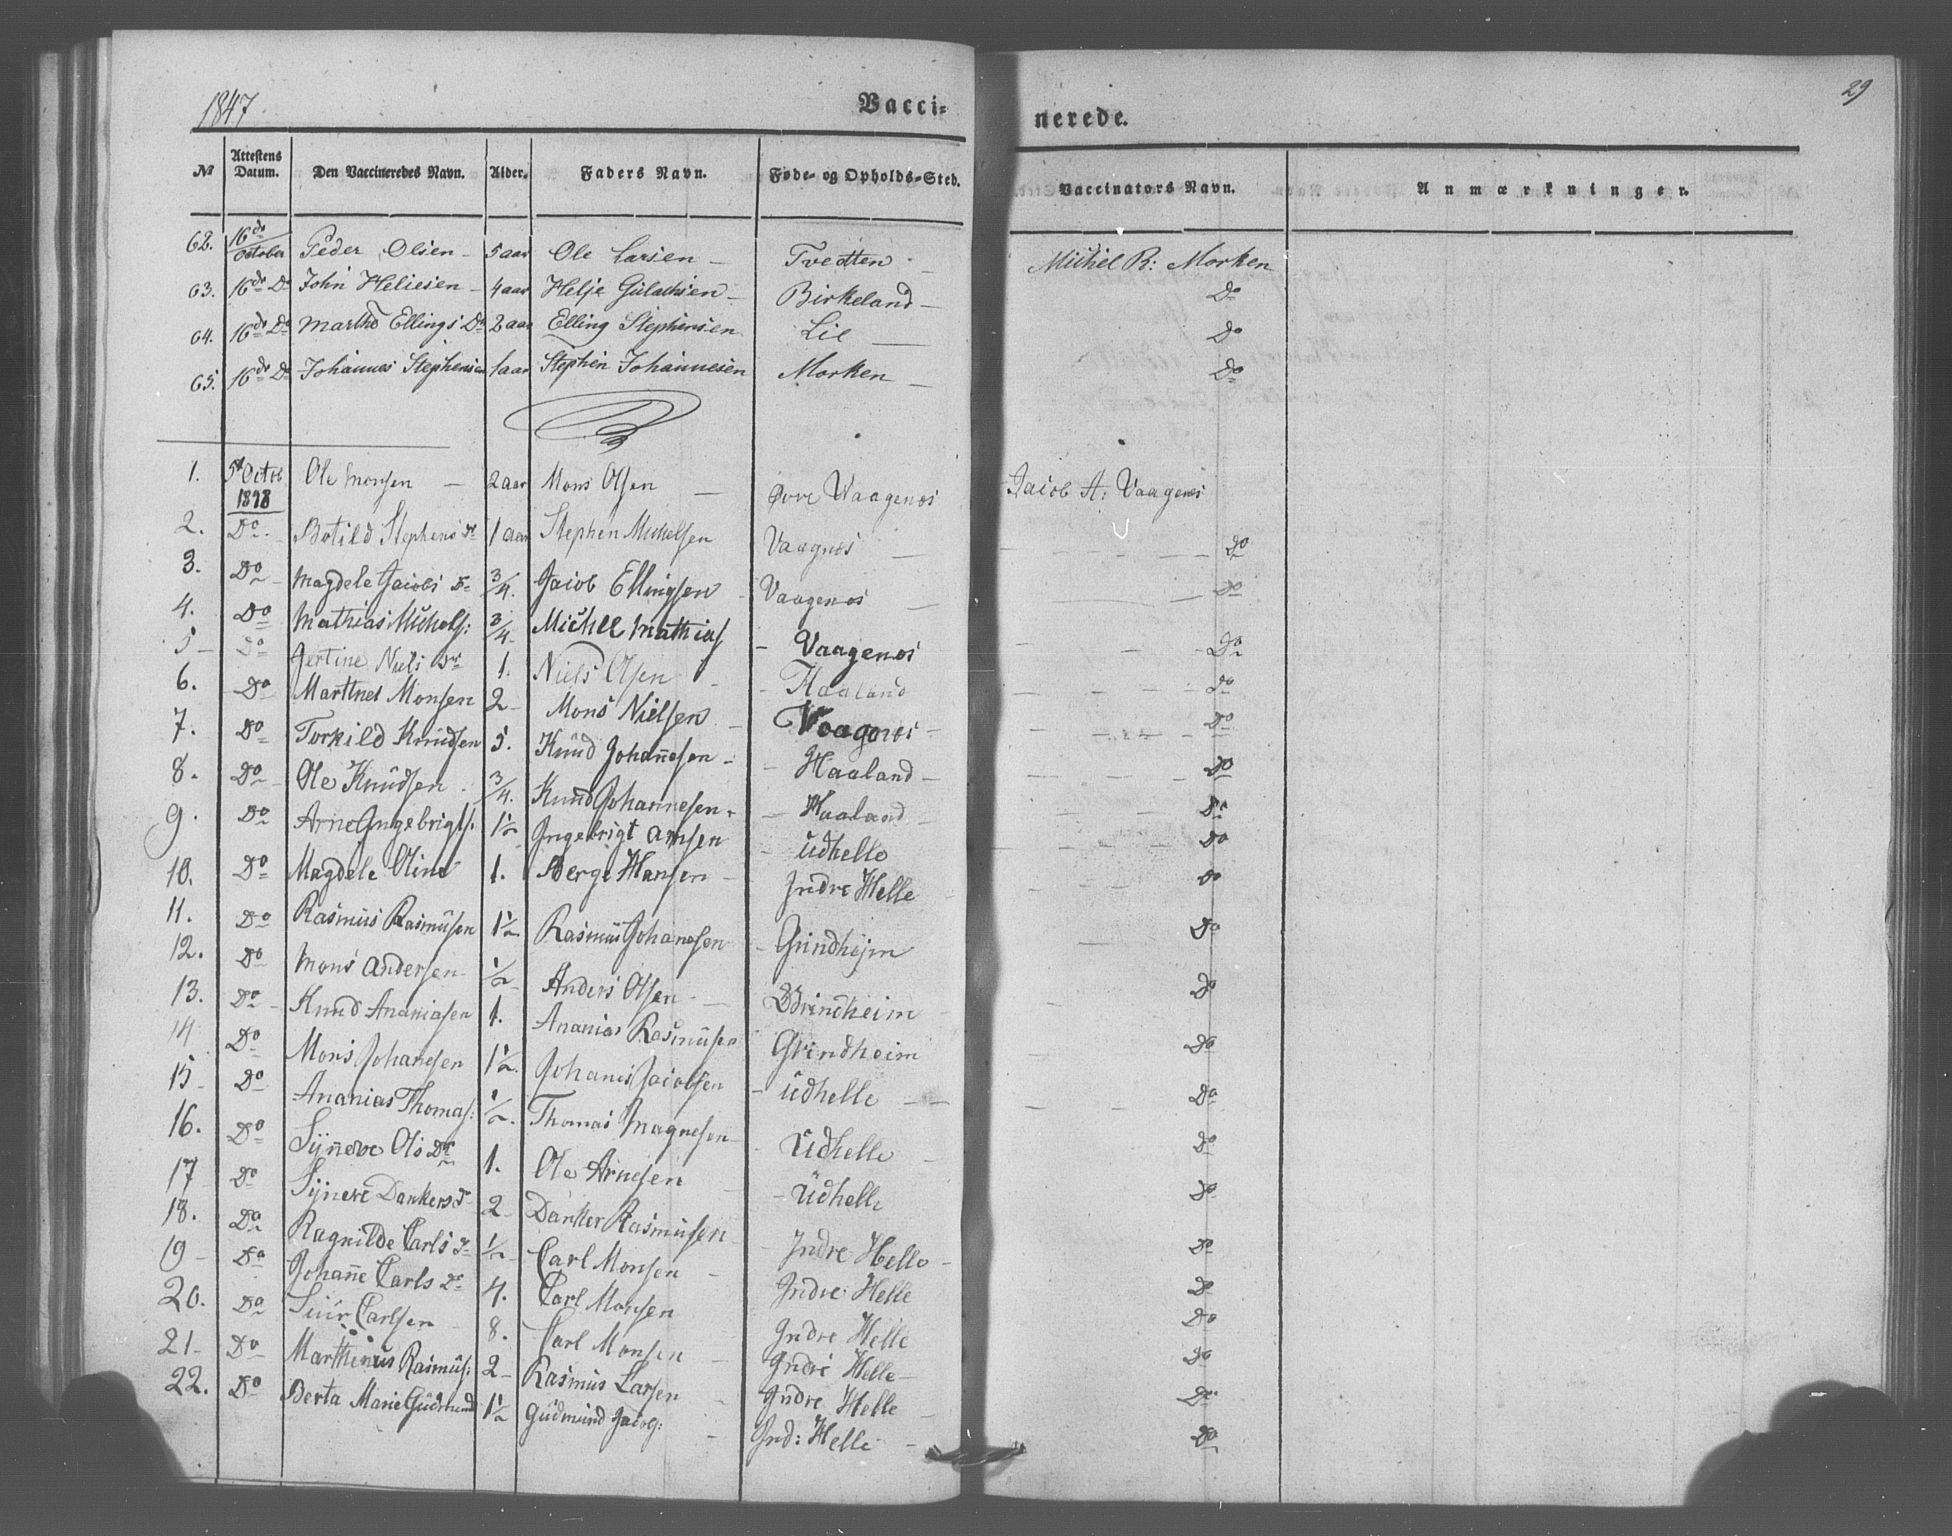 1847
Vacci-
nerede.
29
No
Attestens Datum.
Den Vaccineredes Navn.
Alder.
Faders Navn.
Føde- og Opholds-Sted.
Vaccinators Navn.
Anmærkninger.
62. 16de October Peder Olsen - 5 aar Ole Larsen - Tvedten - Michel R: Morken
63. 16de Do John Heliesen - 4 aar Helje Gulachsen - Birkeland - Do
64. 16de Do Marthe Ellings Do 2 aar Elling Stephensen Lie - Do
65. 16de Do Johannes Stephensen 1 aar Stephen Johannesen Morken - Do
1. 5t Octob 1848 Ole Monsen - 2 aar Mons Olsen - Øvre Waagenes Jacob A: Vaagenes
2. Do Botild Stephens Dr 1 aar Stephen Michelsen Vaagnes - Do
3. Do Magdele Jacobs Dr 3/4. Jacob Ellingsen - Vaagenes - Do
4. Do Mathias Michels: 3/4. Michel Mathias - Vaagenes Do
5 - Do Gertine Niels Dr 1. Niels Olsen - Haaland Do
6. Do Marttnes Monsen 2 - Mons Nielsen - Vaagenes - Do
7. Do Torkild Knudsen 5. Knud Johannesen - Haaland - Do
8. Do Ole Knudsen 3/4. Knud Johannesen - Haaland - Do
9. Do Arne Ingebrigts. 1 1/2 Ingebrigt Arnsen - Udhelle Do
10. Do Magdele Oline 1. Berge Hansen - Indre Helle - Do
11. Do Rasmus Rasmusen 1 1/2 Rasmus Johanesen - Grindheim Do
12. Do Mons Andersen 1/2 Anders Olsen - Grindheim Do
13. Do Knud Ananiasen 1. Ananias Rasmusen Grindheim Do
14 Do Mons Johanesen 1 1/2. Johanes Jacobsen - Udhelle - Do
15 - Do Ananias Thomas: 1/2. Thomas Magnesen - Udhelle - Do
16. Do Synneve Ols Dr 1. Ole Arnesen - Udhelle Do
17 Do Synneve Dankers Dr 2 Danker Rasmusen - Indre Helle - Do
18. Do Ragnilde Carls Dr 1/2 Carl Monsen - Indre Helle Do
19 - Do Johanne Carls Dr 4. Carl Monsen Indre Helle Do
20. Do Siur Carlsen 8. Carl Monsen - Indre Helle - Do
21 - Do Marthinus Rasmus: 2 - Rasmus Larsen - Indre Helle - Do
22. Do Berta Marie Gudmund 1 1/2 Gudmund Jacog: - Ind: Helle - Do